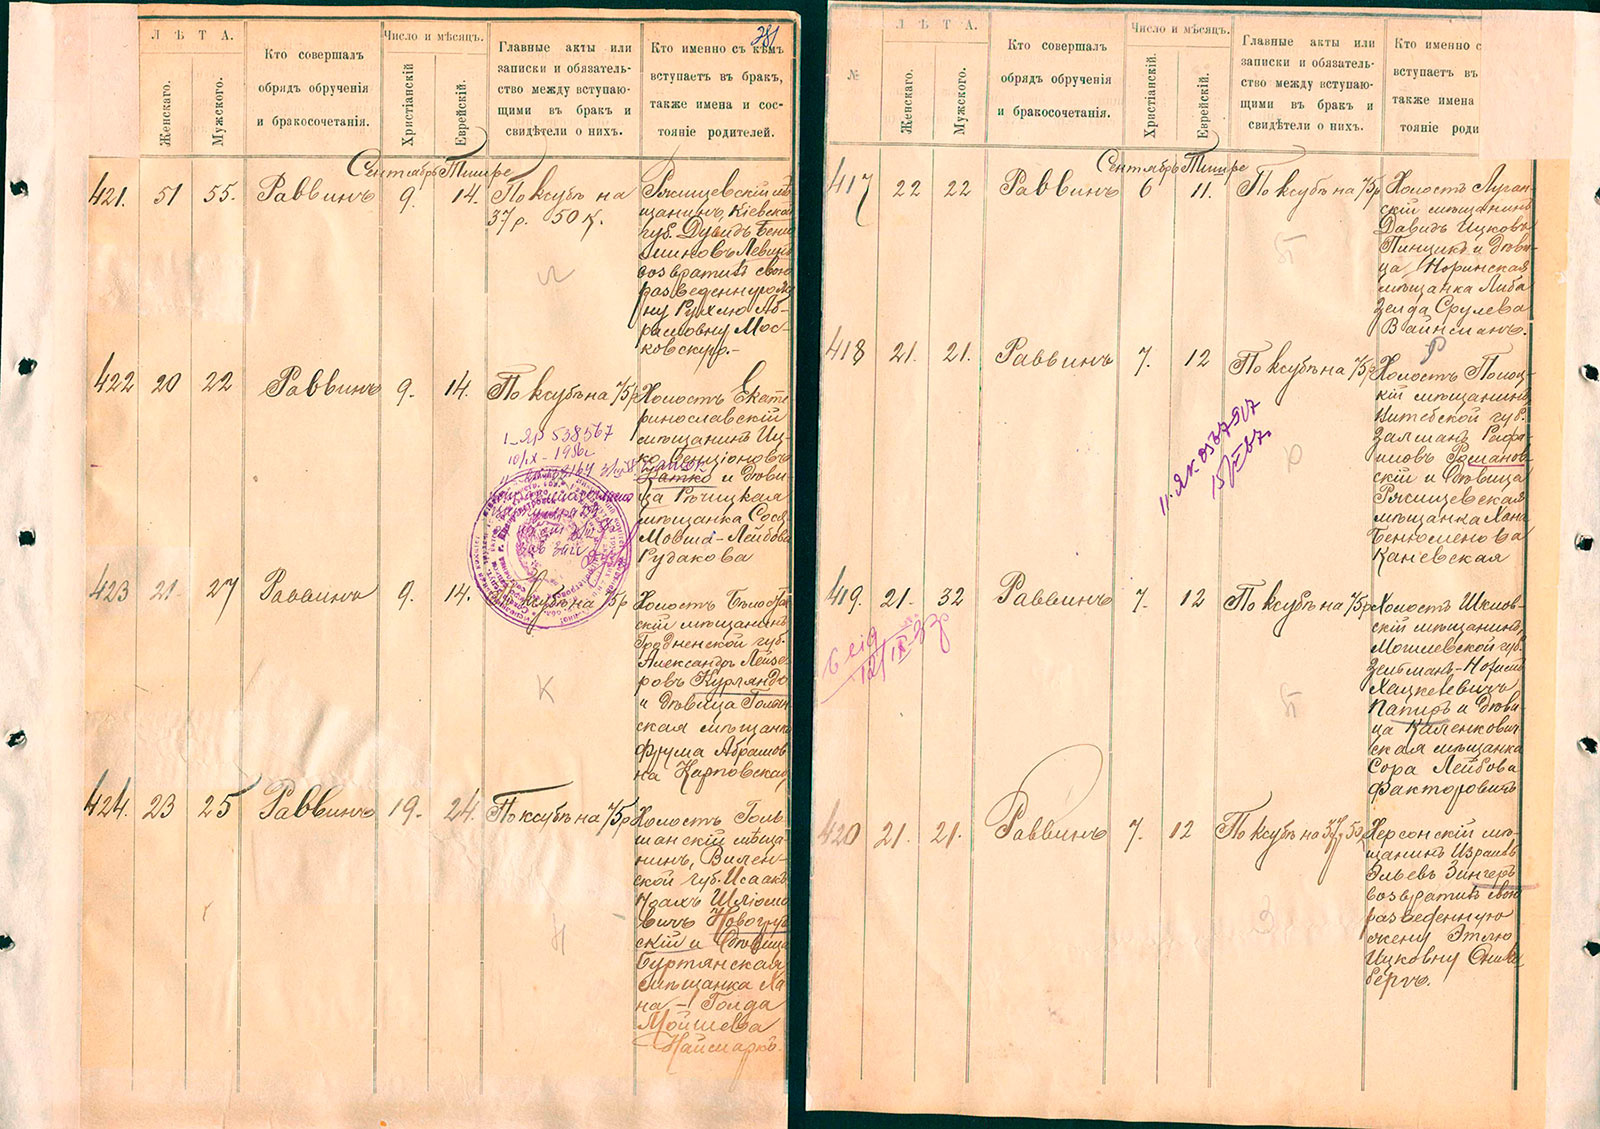 381
ЛѢТА.
Женскаго.
Мужского.
Кто совершалъ
обрядъ обрученія
и бракосочетанія.
Число и мѣсяцъ.
Христіанскій
Еврейскій.
Главные акты или
записки и обязатель-
ство между вступаю-
щими въ бракъ и
свидѣтели о нихъ.
Кто именно съ кѣмъ
вступаетъ въ бракъ,
также имена и сос-
тояніе родителей.
Сентябрь Тишре
421. 51 55. Раввинъ 9. 14. По ксубѣ на
37 р. 50 к.
Ряснцевскій мѣ
щанинъ, Кіевской
губ. Дувидъ Бені
миновъ Левитъ
возвратилъ свою
разведенную же
ну Рухлю Аб-
рамовну Мос-
ковскую.-
422 20 22 Раввинъ 9. 14. По ксубѣ на 75 р
Холостъ Екате
ринославскій
мѣщанинъ Иц-
ко Бенціоновъ
Затко и дѣви
ца Рѣчицкая
мѣщанка Сося
Мовша-Лейбова
Рудакова
I-ЯР 538567
10/IX-1936г
423 21. 27 Раввинъ 9. 14. ксубѣ на 75 р
Холостъ Бѣлосток
скій мѣщанинъ
Гродненской губ.
Александръ Лейзе
ровъ Курляндъ
и дѣвица Голын
ская мѣщанка
Фрума Абрамов
на Карповская
К
424. 23 25 Раввинъ 19. 24. По ксубѣ на 75 р
Холостъ Голь
шанскій мѣща
нинъ, Вилен-
ской губ. Исаакъ
Шліомо
вичъ Новогруд
скій и дѣвица
Буртянская
мѣщанка Ха
на-Голда
Мойшева
Наймаркъ.
Н
№
ЛѢТА.
Женскаго.
Мужского.
Кто совершалъ
обрядъ обрученія
и бракосочетанія.
Число и мѣсяцъ.
Христіанскій.
Еврейскій.
Главные акты или
записки и обязатель-
ство между вступаю-
щими въ бракъ и
свидѣтели о нихъ.
Кто именно с
вступаетъ въ
также имена
тояніе роди
Сентябрь Тишре
417 22 22 Раввинъ 6 11. По ксубѣ на 75 р
Холостъ Луган
скій мѣщанинъ
Давидъ Ицковъ
Пинцикъ и дѣви-
ца Норинская
мѣщанка Либа
Зелда Срулева
Вайнсманъ.
П
418 21. 21. Раввинъ 7. 12 По ксубѣ на 75 р
Р
Холостъ Полоц-
кій мѣщанинъ
Витебской губ.
Залманъ Рафа-
иловъ Романов-
скій и дѣвица
Рясищевская
мѣщанка Хана
Беньоменова
Каневская
II. ЯК 0537917
419. 21. 32 Раввинъ 7. 12 По ксубѣ на 75 р
Холостъ Шклов-
скій мѣщанинъ,
Могилевской губ.
Хацкелевичъ
Папиръ и дѣви-
ца Каленкович
ская мѣщанка
Сора Лейбова
Факторовичъ
П
420 21. 21. Раввинъ 7. 12 По ксубѣ на 37 р 50 к
Херсонскій мѣ-
щанинъ Израиль
Эльевъ Зингеръ
возвратилъ свою
разведенную
жену Этлю
Ицковну
бергъ.
З